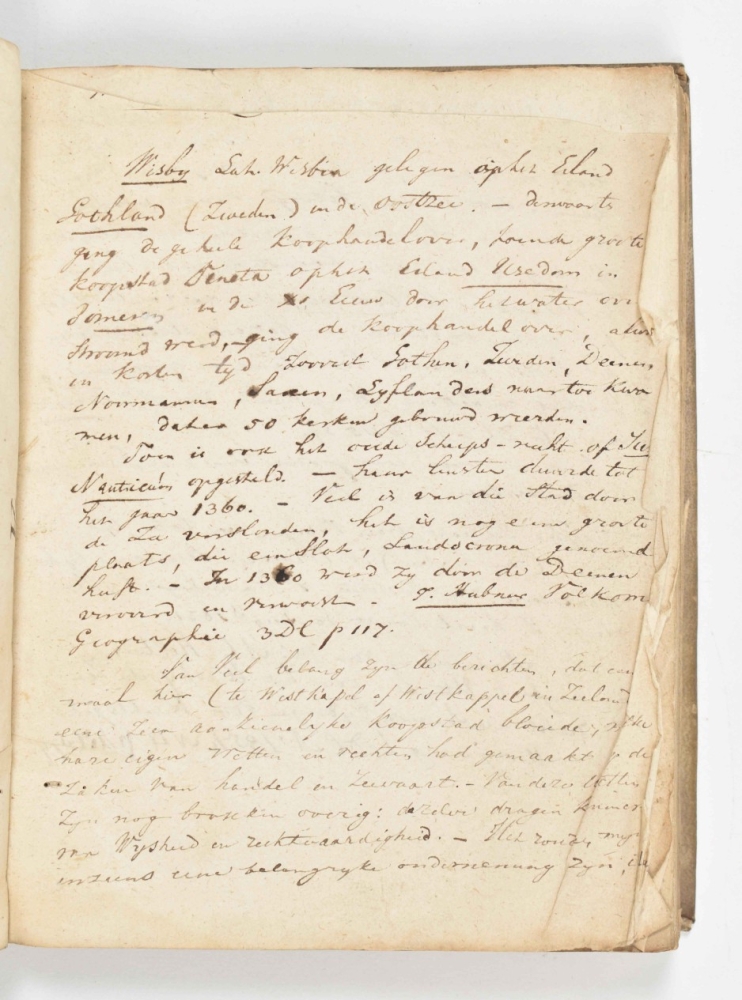 Wisby Lat. Wisbia gelegen op het Eiland
Gothland (Zweeden) in de Oostzee. – derwaarts
ging de geheele koophandel over, toen de groote
koopstad Veneta op het Eiland Usedom in
Pomern in de Eeuw door het water over
stroomd werd, ging de koophandel over, alwaar
in korten tyd zooveel Gothen, Zweeden, Deenen
Noormannen, Saxen, Lyflanders naartoe kwa
men, dat er 50 kerken gebouwd wierden.
Toen is ook het oude Scheeps-recht of Jus
Nauticum opgesteld. – haar luister duurde tot
het jaar 1360. – Veel is van die Stad door
de Zee verslonden, het is nog eene groote
plaats, die een Slot, Landscrona genoemd
heeft. – In 1360 werd zy door de Deenen
veroverd en verwoest – J. Hubner Volkom
Geographie 3 Dl p 117.
Van Veel belang zyn de berichten, dat een
maal hier (te Westkapel of Westkappel in Zeeland
eene zeer aanzienelyke Koopstad bloeide, welke
hare eigen Wetten en rechten had gemaakt in de
Zaken van handel en Zeevaart. – Van deze Wetten
zyn nog overig: dezelve dragen
van Wysheid en rechtvaardigheid. – Het zoude, myns
inziens eene belangryke onderneming zyn,